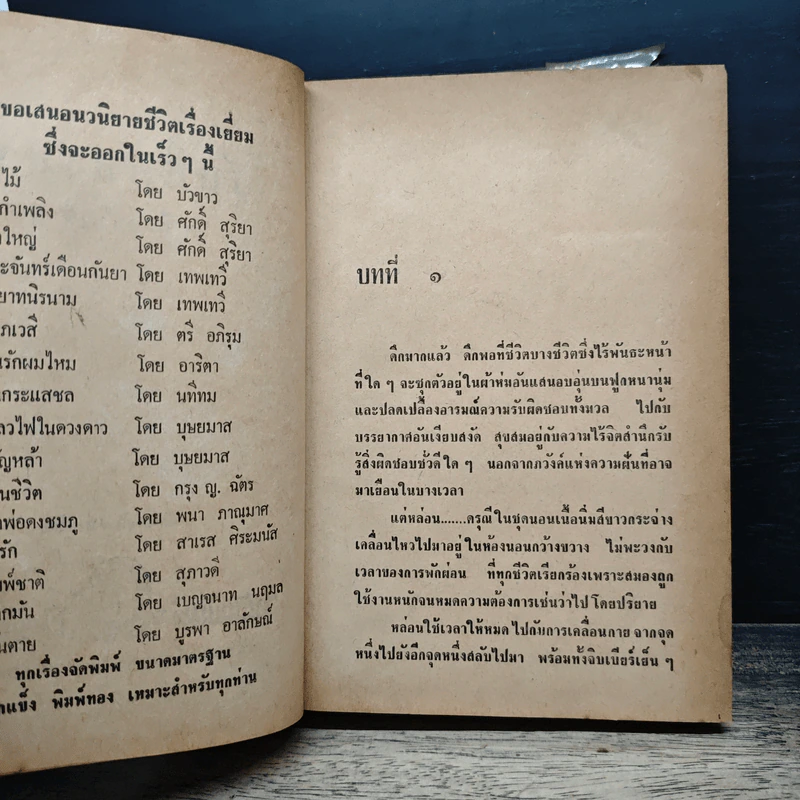 ขอเสนอนวนิยายชีวิตเรื่องเยี่ยม
ซึ่งจะออกในเร็ว ๆ นี้
ไม้ โดย บัวขาว
กำเพลิง โดย ศักดิ์ สุริยา
ใหญ่ โดย ศักดิ์ สุริยา
ะจันทร์เดือนกันยา โดย เทพเทวี
ยาทนิรนาม โดย เทพเทวี
ภเวสี โดย ตรี อภิรุม
นรักผมไหม โดย อาริตา
กระแสชล โดย นทีทม
ลวไฟในดวงดาว โดย บุษยมาส
ญหล้า โดย บุษยมาส
นชีวิต โดย กรุง ญ. ฉัตร
พ่อดงชมภู โดย พนา ภาณุมาศ
รัก โดย สาเรส ศิระมนัส
พ์ชาติ โดย สุภาวดี
ากมัน โดย เบญจนาท นฤมล
นตาย โดย บูรพา อาลักษณ์
ทุกเรื่องจัดพิมพ์ ขนาดมาตรฐาน
แข็ง พิมพ์ทอง เหมาะสำหรับทุกท่าน
บทที่ ๑
ดึกมากแล้ว ดึกพอที่ชีวิตบางชีวิตซึ่งไร้พันธะหน้า
ที่ใด ๆ จะซุกตัวอยู่ในผ้าห่มอันแสนอบอุ่นบนฟูกหนานุ่ม
และปลดเปลื้องอารมณ์ความรับผิดชอบทั้งมวล ไปกับ
บรรยากาศอันเงียบสงัด สุขสมอยู่กับความไร้จิตสำนึกรับ
รู้สิ่งผิดชอบชั่วดีใด ๆ นอกจากภวังค์แห่งความฝันที่อาจ
มาเยือนในบางเวลา
แต่หล่อน.......ดรุณีในชุดนอนเนื้อนิ่มสีขาวกระจ่าง
เคลื่อนไหวไปมาอยู่ในห้องนอนกว้างขวาง ไม่พะวงกับ
เวลาของการพักผ่อน ที่ทุกชีวิตเรียกร้องเพราะสมองถูก
ใช้งานหนักจนหมดความต้องการเช่นว่าไป โดยปริยาย
หล่อนใช้เวลาให้หมดไปกับการเคลื่อนกาย จากจุด
หนึ่งไปยังอีกจุดหนึ่งสลับไปมา พร้อมทั้งจิบเบียร์เย็น ๆ